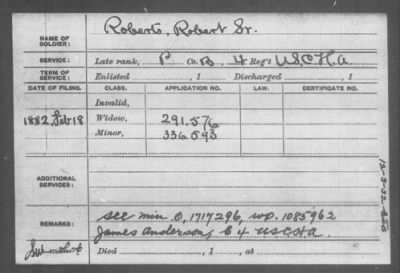 NAME OF SOLDIER: Roberts, Robert Sr.
SERVICE: Late rank, P Co. B, 4 Reg't U.S.C.H.A.
TERM OF SERVICE: Enlisted , 1 Discharged , 1
DATE OF FILING. CLASS. APPLICATION NO. LAW. CERTIFICATE NO.
Invalid,
1882, Feb 18 Widow, 291.576
Minor, 336.593
ADDITIONAL SERVICES:
REMARKS: See min. O, 1717296, wo. 1085962
James Anderson, C 4 U S C H A.
Died , 1 , at